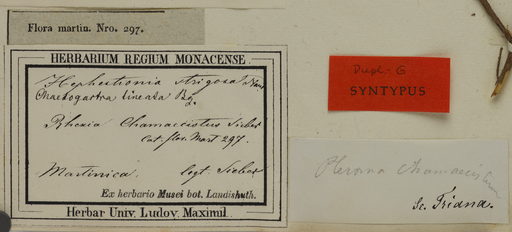 Flora martin. Nro. 297.
HERBARIUM REGIUM MONACENSE.
Hephestionia strigosa Naud
Chaetogastra lineata Bg.
Rhexia Chamaecistus Sieber
Cat. flor. Mart 297.
Martinica. legt. Sieber
Ex herbario Musei bot. Landishuth.
Herbar Univ. Ludov. Maximil
Dupl. G
SYNTYPUS
Pleroma chamaecistum
Sc. Triana.